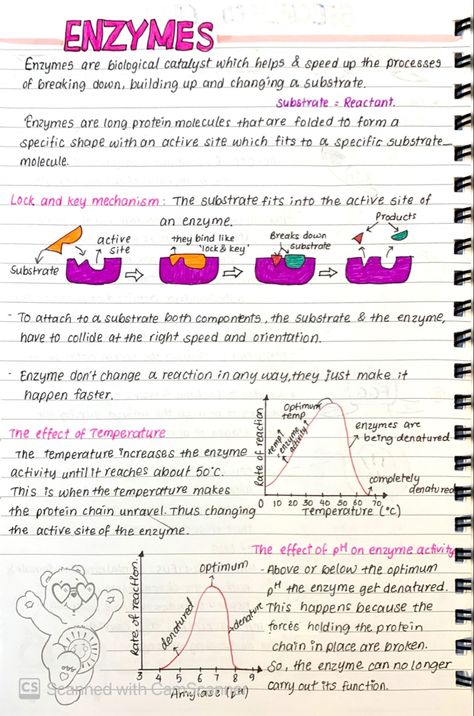 ENZYMES
Enzymes are biological catalyst which helps & speed up the processes
of breaking down, building up and changing a substrate.
Substrate = Reactant.
Enzymes are long protein molecules that are folded to form a
specific shape with an active site which fits to a specific substrate
molecule.
Lock and key mechanism: The substrate fits into the active site of
an enzyme.
Products
active
site
they bind like
'lock & key'
Breaks down
substrate
Substrate
- To attach to a substrate both components, the substrate & the enzyme,
have to collide at the right speed and orientation.
- Enzyme don't change a reaction in any way, they just make it
happen faster.
The effect of Temperature
The temperature increases the enzyme
activity until it reaches about 50°C.
This is when the temperature makes
the protein chain unravel. Thus changing
the active site of the enzyme.
Rate of reaction
Optimum
temp
temp↑ enzyme
activity↑
enzymes are
being denatured
completely
denatured
0 10 20 30 40 50 60 70
Temperature (°C)
The effect of pH on enzyme activity
- Above or below the optimum
pH the enzyme get denatured.
This happens because the
forces holding the protein
chain in place are broken.
So, the enzyme can no longer
carry out its function.
Rate of reaction.
optimum
denatured
denature
3 4 5 6 7 8 9
Amylase (pH)
CS Scanned with CamScanner